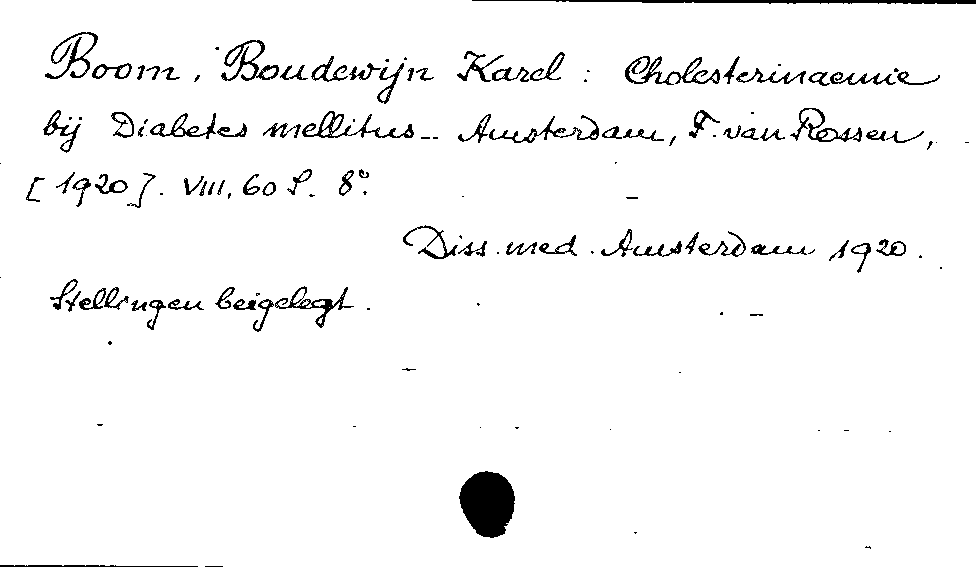 Boom, Boudewijn Karel : Cholesterinaemie
bij Diabetes mellitus.- Amsterdam, F. van Rossen,
[1920]. VIII, 60 S. 8°.
Diss. med. Amsterdam 1920.
Stellingen beigelegt.